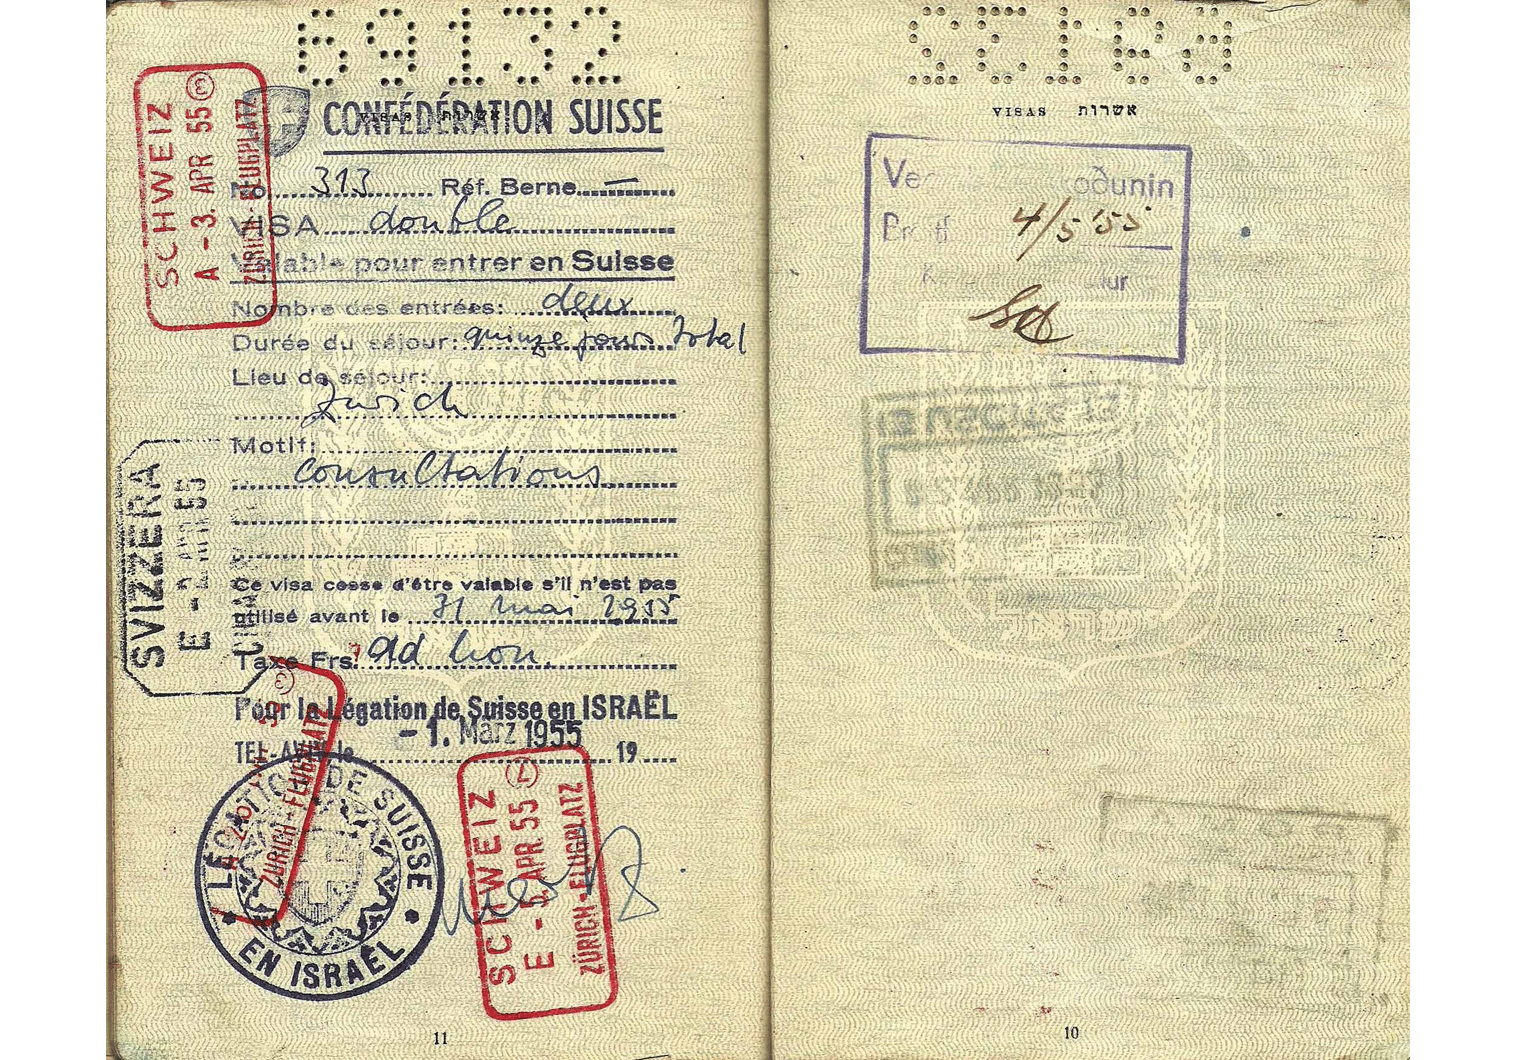 69132
CONFÉDÉRATION SUISSE
VISAS אשרות
No. 313 Réf. Berne. —
VISA double
Valable pour entrer en Suisse
Nombre des entrées: deux
Durée du séjour: quinze jours total
Lieu de séjour:
Zurich
Motif:
consultations
Ce visa cesse d'être valable s'il n'est pas
utilisé avant le 31 mai 1955
Taxe Frs. ad hon.
Pour la Légation de Suisse en ISRAËL
- 1. März 1955
TEL-AVIV le 19
LÉGATION DE SUISSE
EN ISRAËL
SCHWEIZ
A - 3. APR 55 3
ZÜRICH - FLUGPLATZ
SVIZZERA
E - 2 APR 55
ZÜRICH - FLUGPLATZ
SCHWEIZ
E - 5. APR. 55 7
ZÜRICH - FLUGPLATZ
11
69132
VISAS אשרות
4/5 '55
10